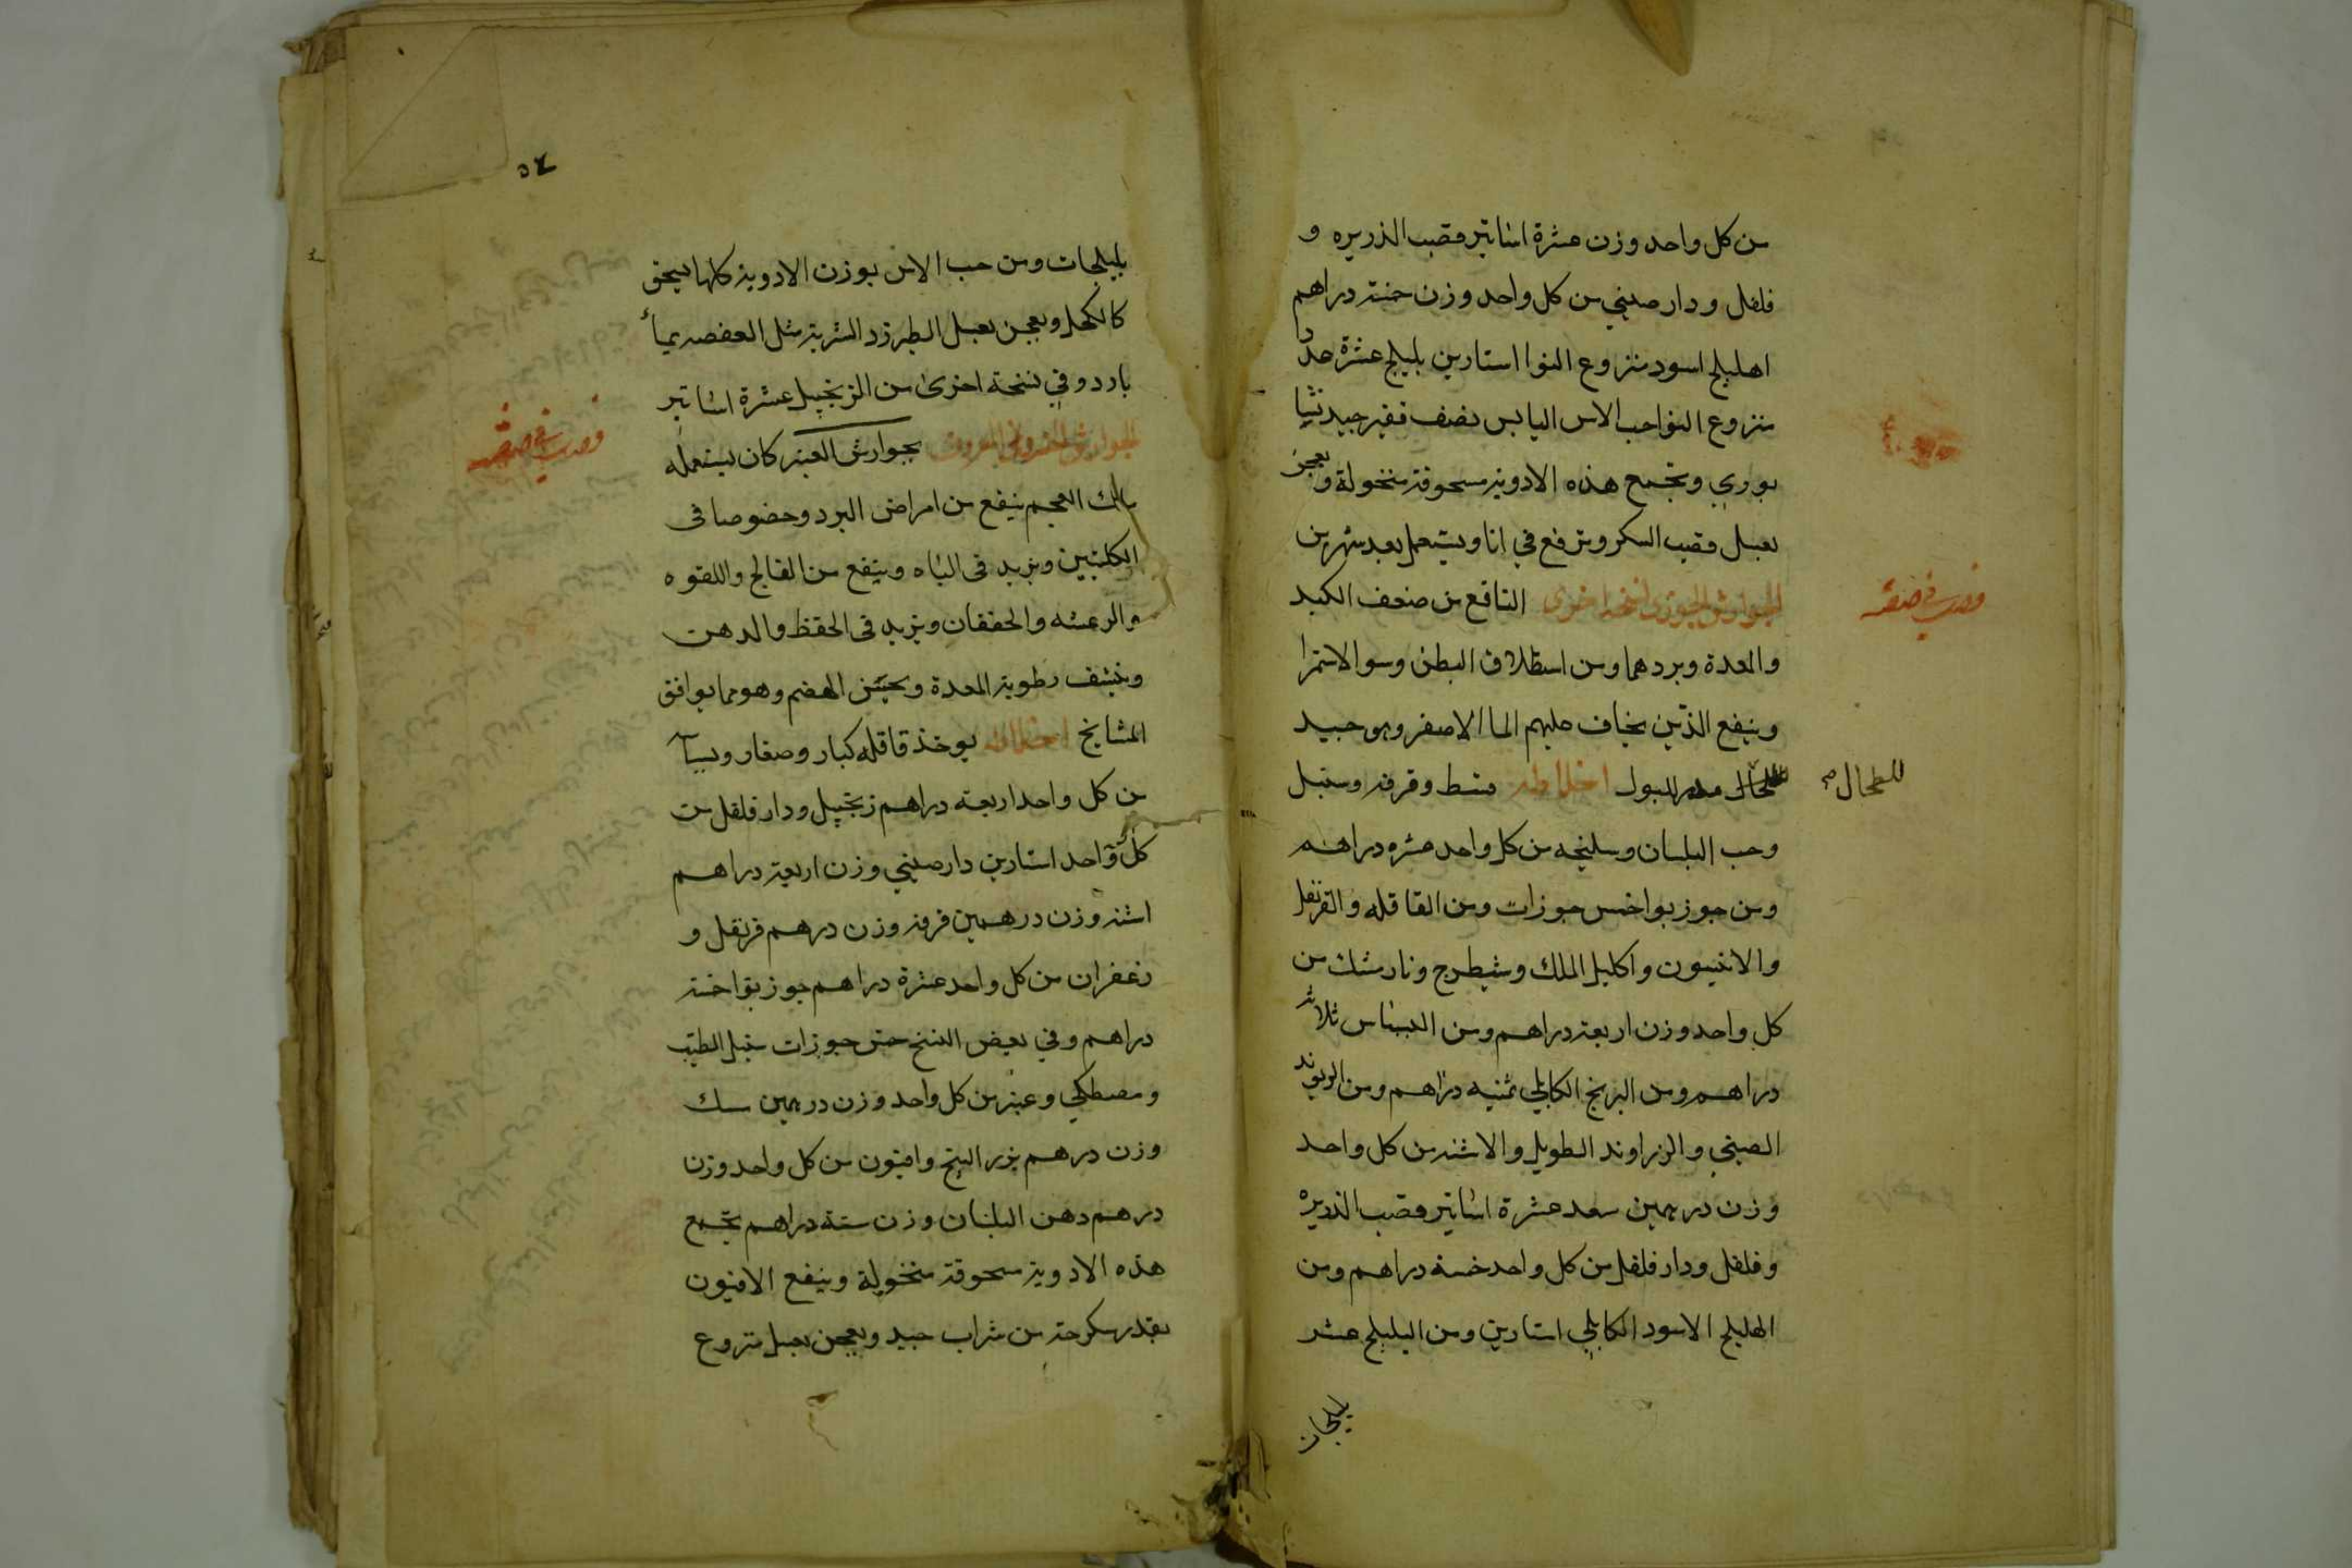 من كل واحد وزن عشرة اساتير وقصب الذريره و
فلفل ودارصيني من كل واحد وزن خمسة دراهم
اهليلج اسود منزوع النوا استارين بليلج عشرة عددا
منزوع النوا حب الاس اليابس نصف قفيز جيد نثيا
بوري وتجمع هذه الادوية مسحوقة منخولة ويعجن
بعسل قصب السكر وترفع في انا ويستعمل بعد شهرين
الجوارش الجوزي نسخة اخرى النافع من ضعف الكبد
والمعدة وبردهما ومن استطلاق البطن وسو الاستمرا
وينفع الذين يخاف عليهم الما الاصفر وهو جيد
للطحال مدر للبول اخلاطه قسط وقرفه وسنبل
للطحال صح
وحب البلسان وسليخه من كل واحد عشره دراهم
ومن جوز بوا خمس جوزات ومن القاقله والقرنفل
والانيسون واكليل الملك وشيطرج ونارمشك من
كل واحد وزن اربعة دراهم ومن البسباس ثلاثة
دراهم ومن البرنج الكابلي ثمنيه دراهم ومن الريوند
الصيني والزراوند الطويل والاشنه من كل واحد
وزن درهمين سعد عشرة اساتير وقصب الذريره
وفلفل ودارفلفل من كل واحد خمسة دراهم ومن
الهليلج الاسود الكابلي استارين ومن البليلج عشر
بليلجات
٥٤
بليلجات ومن حب الاس بوزن الادوية كلها يسحق
كالكحل ويعجن بعسل الطبرزد الشربة مثل العفصه بماء
بارد وفي نسخة اخرى من الزنجبيل عشرة اساتير
الجوارش الخسرواني المعروف بجوارش العنبر كان يستعمله
ملك العجم ينفع من امراض البرد وخصوصا في
الكليتين ويزيد في الباه وينفع من الفالج واللقوه
والرعشه والخفقان ويزيد في الحفظ والذهن
وينشف رطوبة المعدة ويحسن الهضم وهو مما يوافق
المشايخ اخلاطه يوخذ قاقله كبار وصغار وبسباسه
من كل واحد اربعة دراهم زنجبيل ودارفلفل من
كل واحد استارين دارصيني وزن اربعة دراهم
اشنه وزن درهمين قرفه وزن درهم قرنفل و
زعفران من كل واحد عشرة دراهم جوز بوا خمسة
دراهم وفي بعض النسخ خمس جوزات سنبل الطيب
ومصطكي وعنبر من كل واحد وزن درهمين سك
وزن درهم بزر البنج وافيون من كل واحد وزن
درهم دهن البلسان وزن ستة دراهم تجمع
هذه الادوية مسحوقة منخولة وينقع الافيون
بقدر سكرجة من شراب جيد ويعجن بعسل منزوع